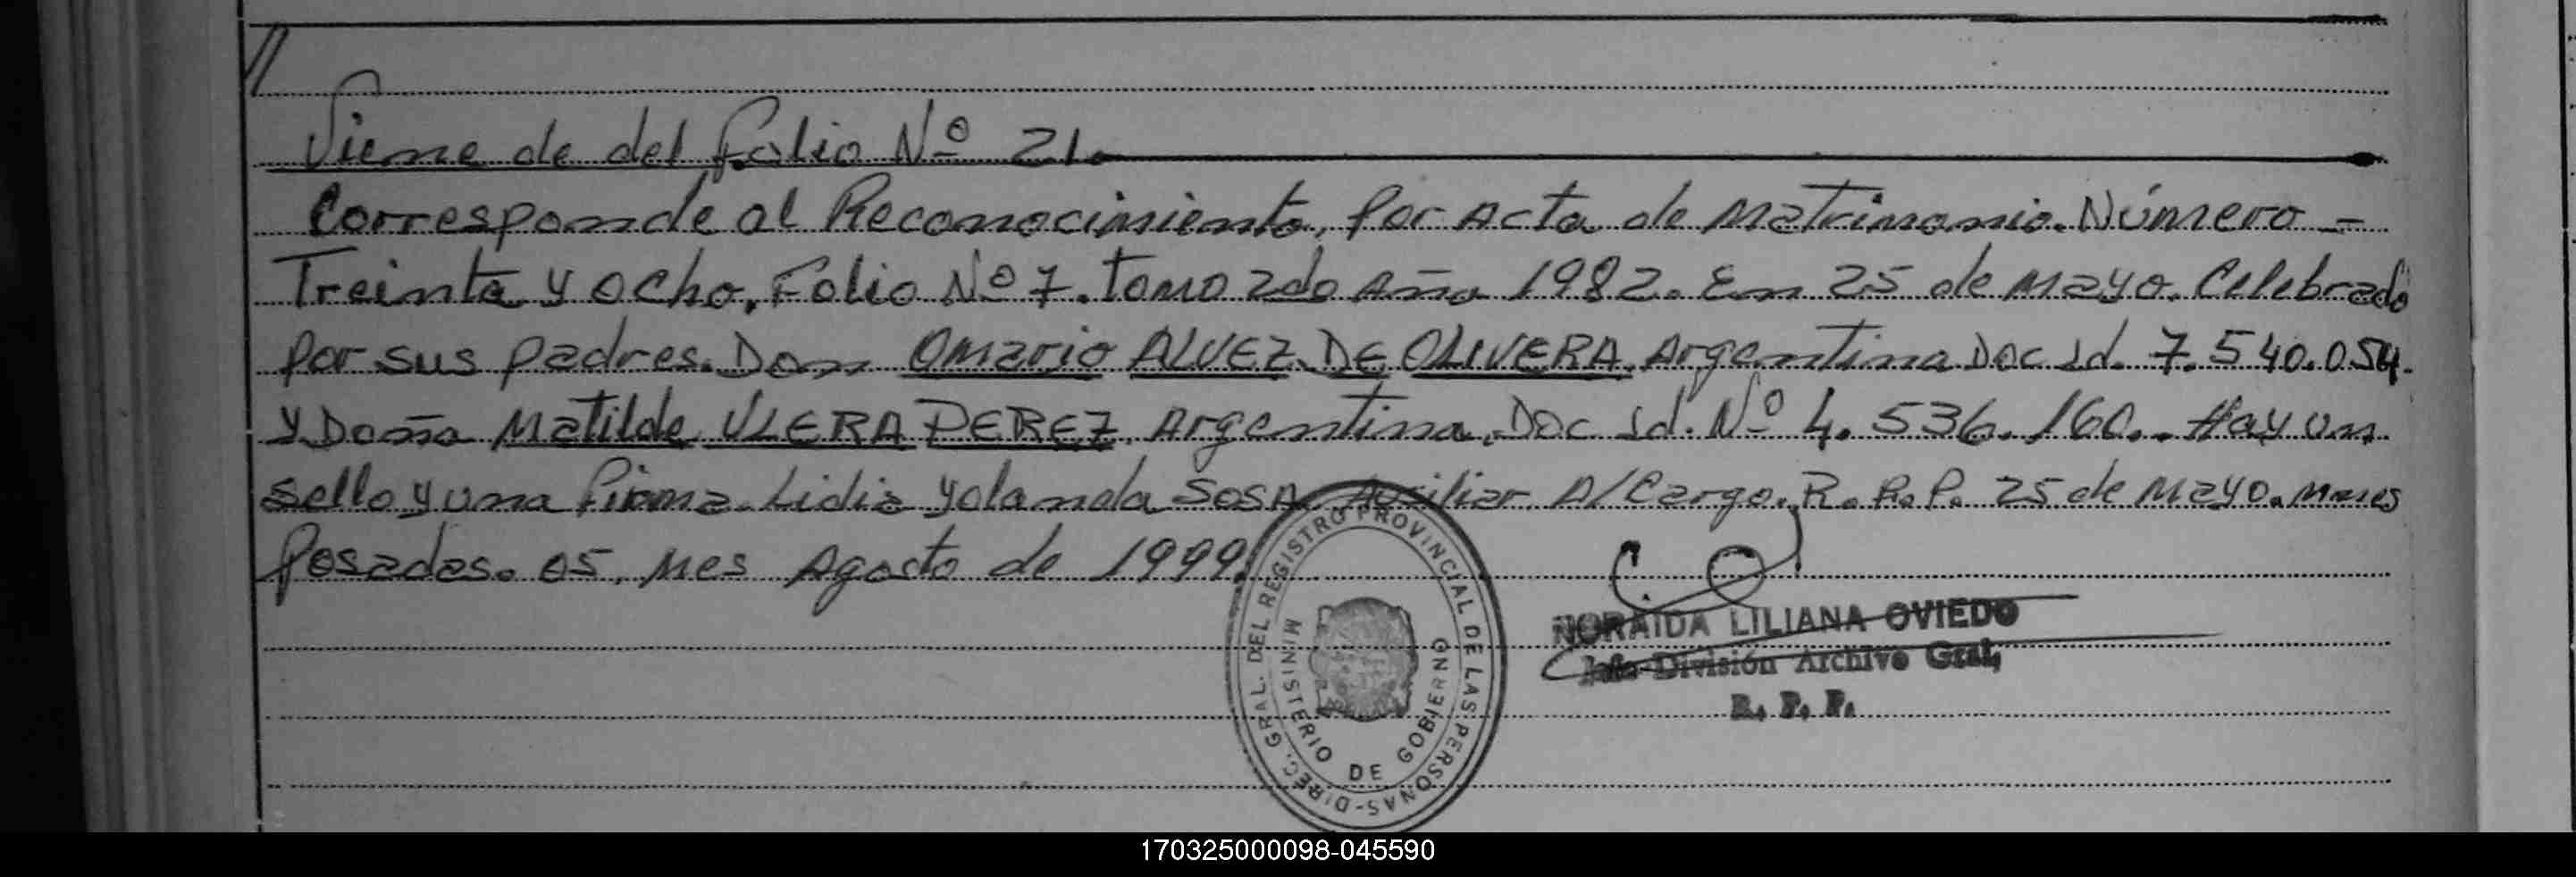 //
Viene de del folio Nº 21.
Corresponde al Reconocimiento, por Acta de Matrimonio. Número -
Treinta y ocho. Folio Nº 7. tomo 2do Año 1982. En 25 de Mayo. Celebrado
por sus padres. Don Omario ALVEZ DE OLIVERA. Argentina Doc Id. 7.540.054.
y Doña Matilde VIERA PEREZ. Argentina. Doc Id. Nº 4.536.160.. Hay un
sello y una firma. Lidia Yolanda SOSA Auxiliar A/Cargo. R.P.P. 25 de Mayo.
Posadas. 05, Mes Agosto de 1999.
DIREC. GRAL. DEL REGISTRO PROVINCIAL DE LAS PERSONAS-
MINISTERIO DE GOBIERNO
NORAIDA LILIANA OVIEDO
Jefe División Archivo Gral,
R. P. P.
170325000098-045590